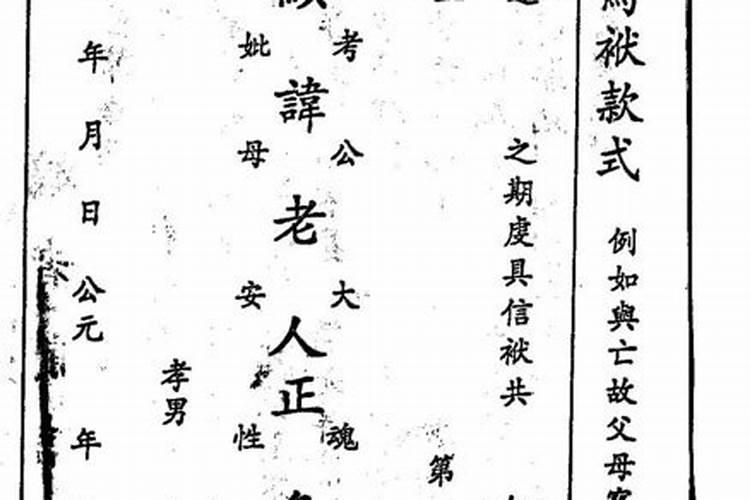 袱款式 例如與亡故父母
之期虔具信袱共
第
考 公 大 魂
諱 老 人 正
妣 母 安 性
孝男
年 月 日 公元 年